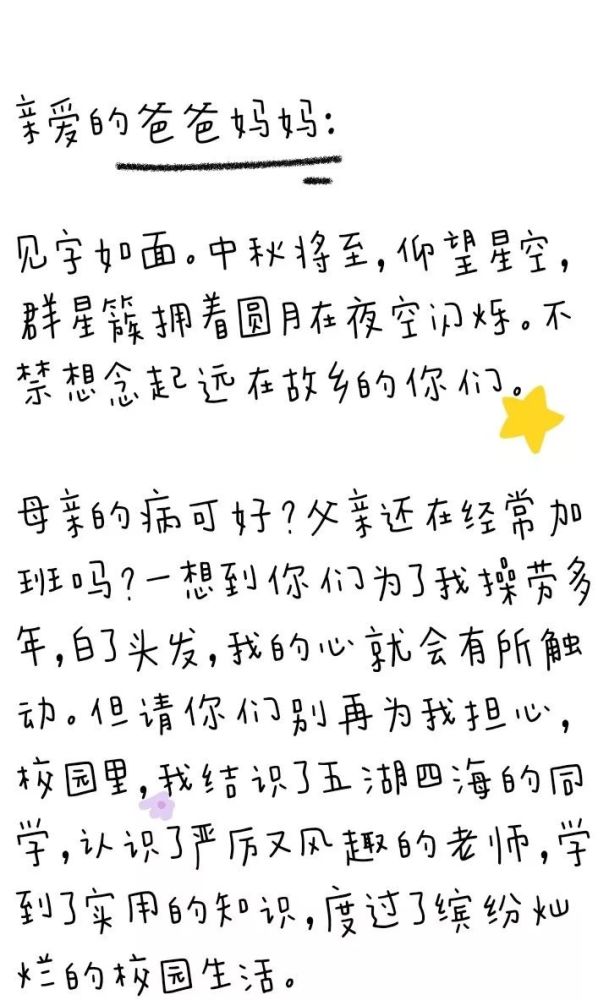 亲爱的爸爸妈妈:
见字如面。中秋将至,仰望星空,
群星簇拥着圆月在夜空闪烁。不
禁想念起远在故乡的你们。
母亲的病可好?父亲还在经常加
班吗?一想到你们为了我操劳多
年,白了头发,我的心就会有所触
动。但请你们别再为我担心,
校园里,我结识了五湖四海的同
学,认识了严厉又风趣的老师,学
到了实用的知识,度过了缤纷灿
烂的校园生活。